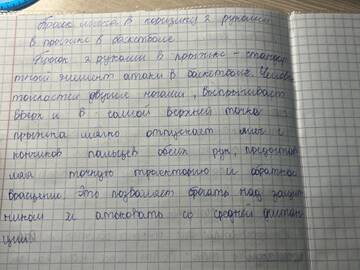 Бросок мяча в корзину 2 руками
в прыжке в баскетболе
Бросок 2 руками в прыжке – стандар
тный элемент атаки в баскетболе. Человек
толкается двумя ногами, выпрыгивает
вверх и в самой верхней точке
прыжка мягко отпускает мяч с
кончиков пальцев обеих рук, предостав
ляя точную траекторию и обратное
вращение. Это позволяет бросать над защит
ником и атаковать со средней дистан
ции